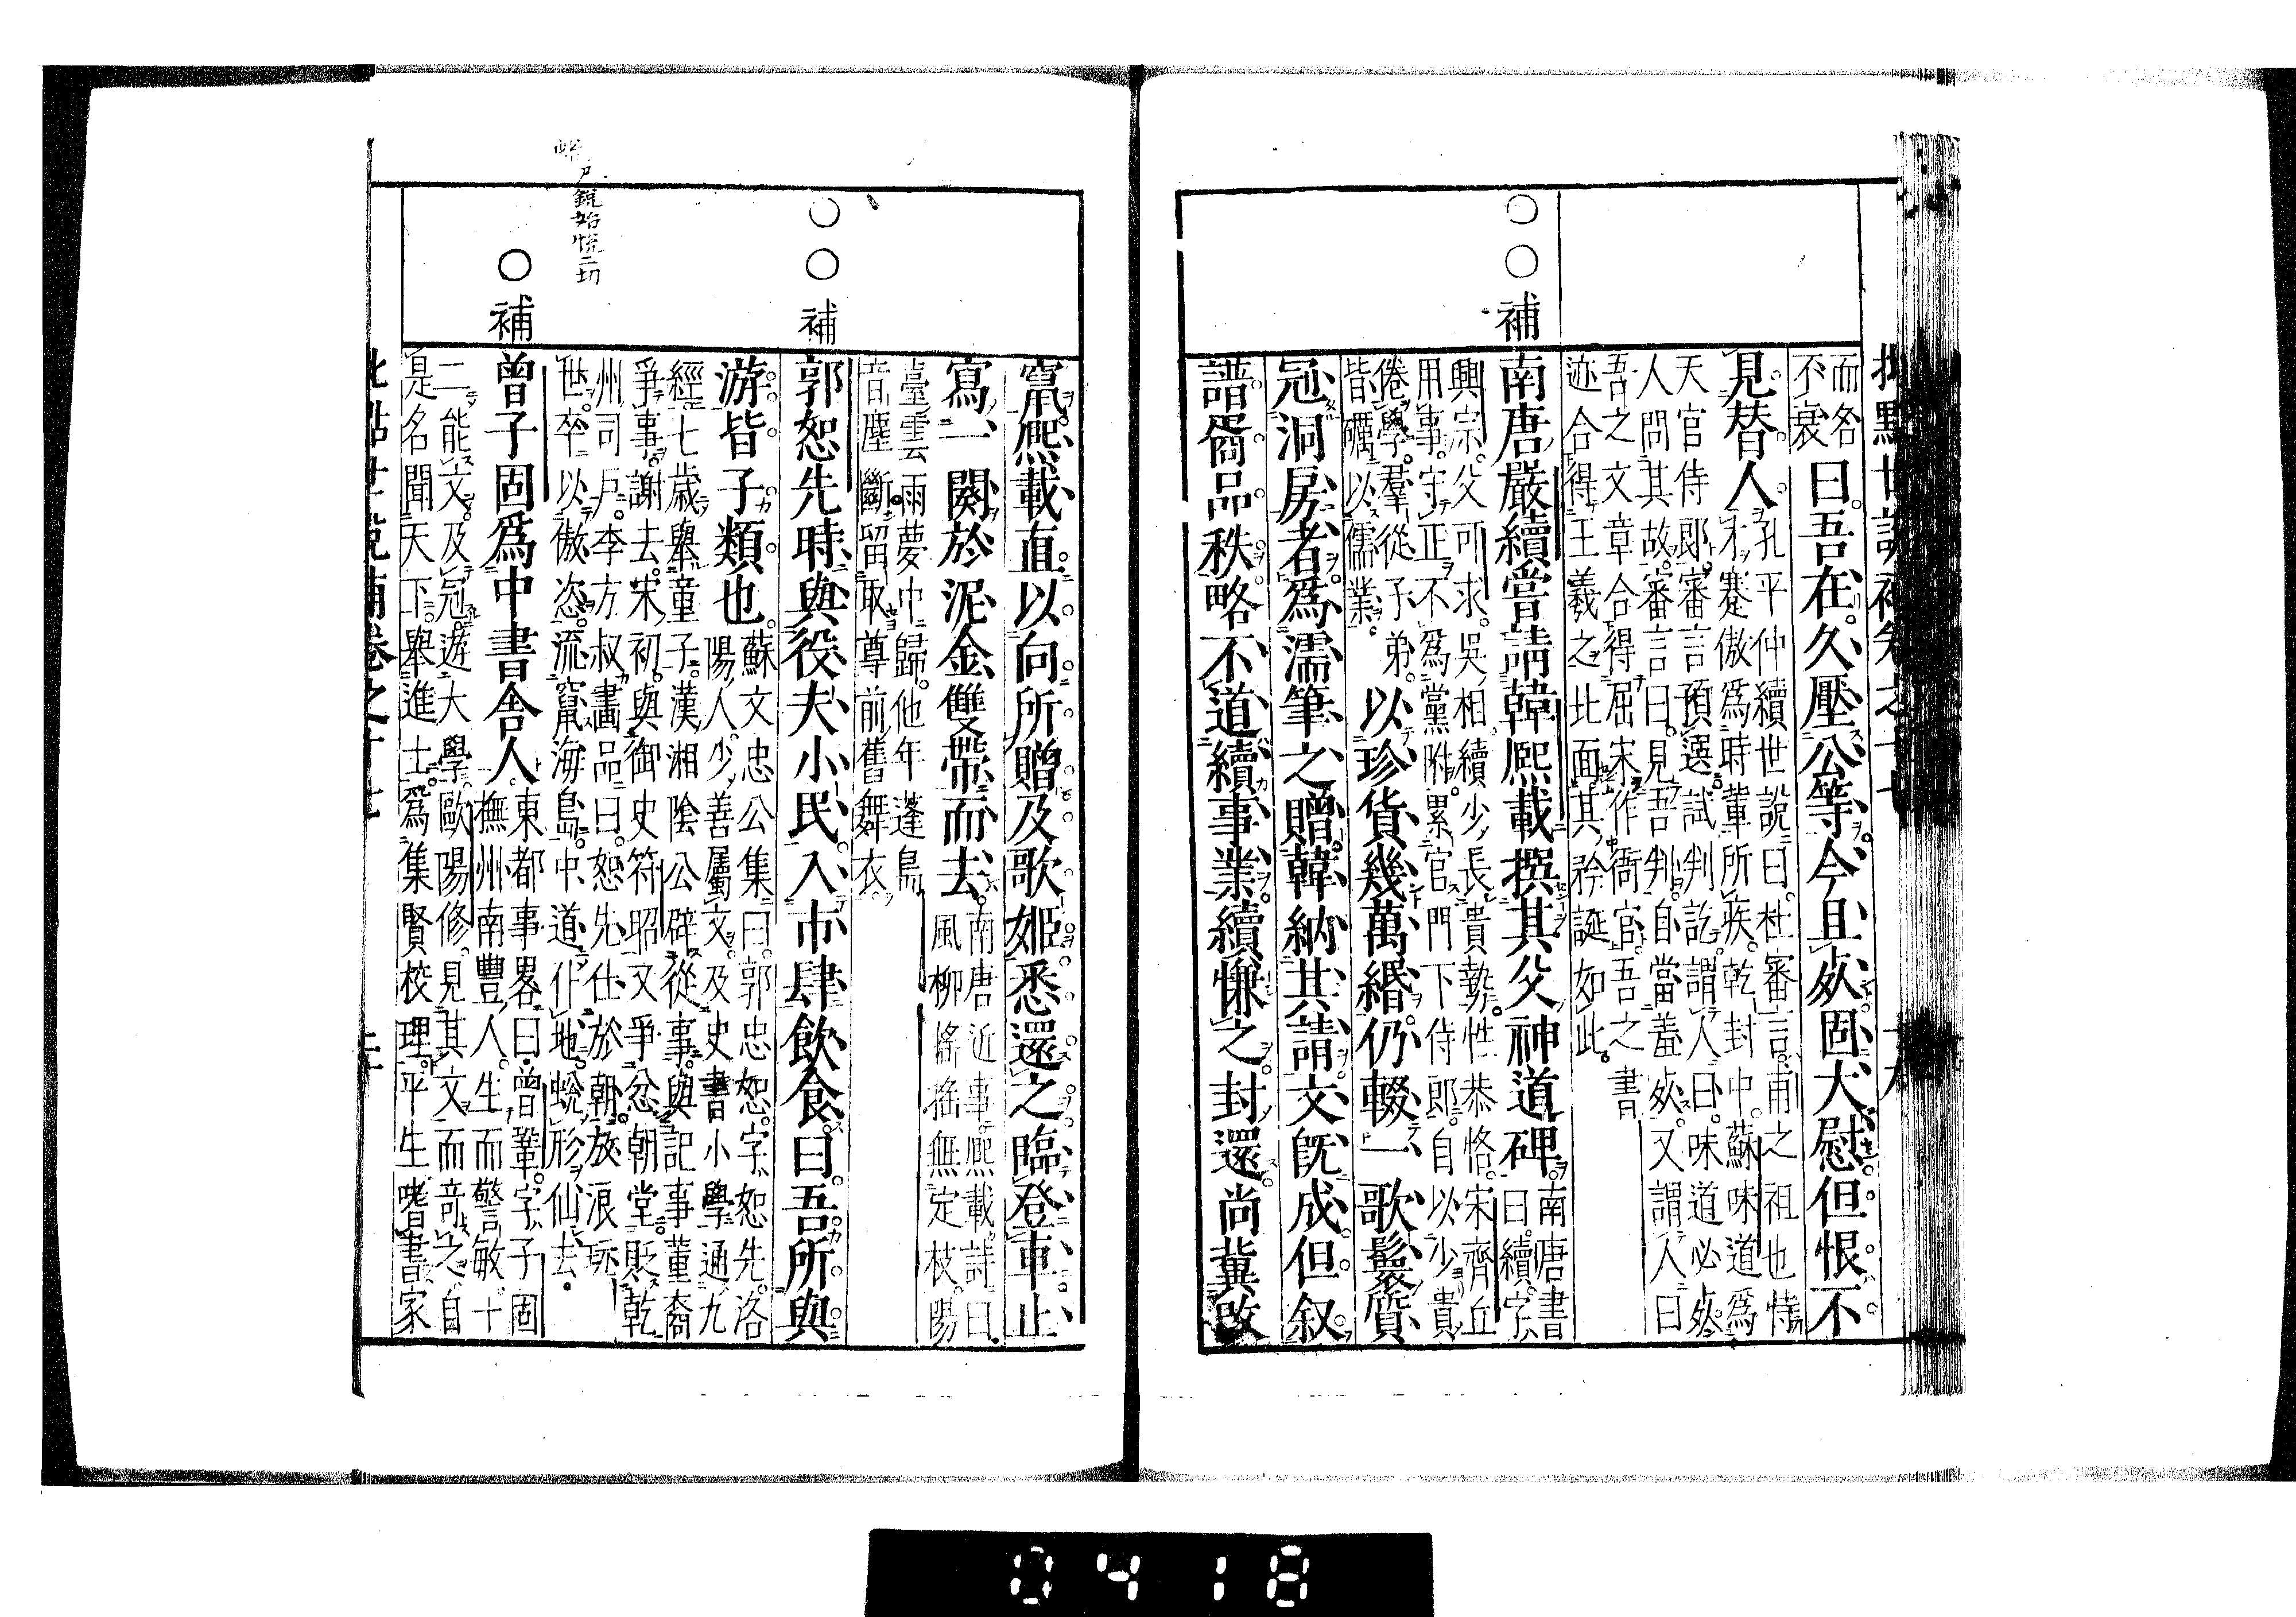 批點世說補卷之十七 十九
而各
不衰
曰吾在久壓公等今且死固大慰但恨不
見替人
孔平仲續世說曰杜審言甫之祖也恃
才蹇傲爲時輩所疾乾封中蘇味道爲
天官侍郎審言預選試判訖謂人曰味道必死
人問其故審言曰見吾判自當羞死又謂人曰
吾之文章合得屈宋作衙官吾之書
迹合得王羲之北面其矜誕如此
○○補
南唐嚴續嘗請韓熙載撰其父神道碑
南唐書
曰續字
興宗父可求吳相續少長貴勢性恭恪宋齊丘
用事守正不爲黨附累官門下侍郎自以少貴
倦學羣從子弟
皆礪以儒業
以珍貨幾萬緡仍輟一歌鬟質
冠洞房者爲濡筆之贈韓納其請文旣成但叙
譜裔品秩略不道續事業續慊之封還尚冀改
竄熙載直以向所贈及歌姬悉還之臨登車止
寫一闋於泥金雙帶而去
南唐近事熙載詩曰
風柳搖搖無定枝陽
臺雲雨夢中歸他年蓬島
音塵斷留取尊前舊舞衣
○○補
郭恕先時與役夫小民入市肆飲食曰吾所與
游皆子類也
蘇文忠公集曰郭忠恕字恕先洛
陽人少善屬文及史書小學通九
經七歲舉童子漢湘陰公辟從事與記事董裔
爭事謝去宋初與御史符昭文爭忿朝堂貶乾
州司戶李方叔畫品曰恕先仕於朝放浪玩
世卒以傲恣流竄海島中道仆地蛻形仙去
戶銳始悅二切
○補
曾子固爲中書舍人
東都事畧曰曾鞏字子固
撫州南豐人生而警敏十
二能文及冠遊大學歐陽修見其文而奇之自
是名聞天下舉進士爲集賢校理平生嗜書家
0418